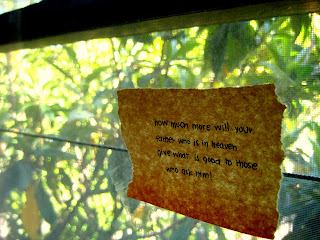 how much more will your
father who is in heaven
give what is good to those
who ask Him!